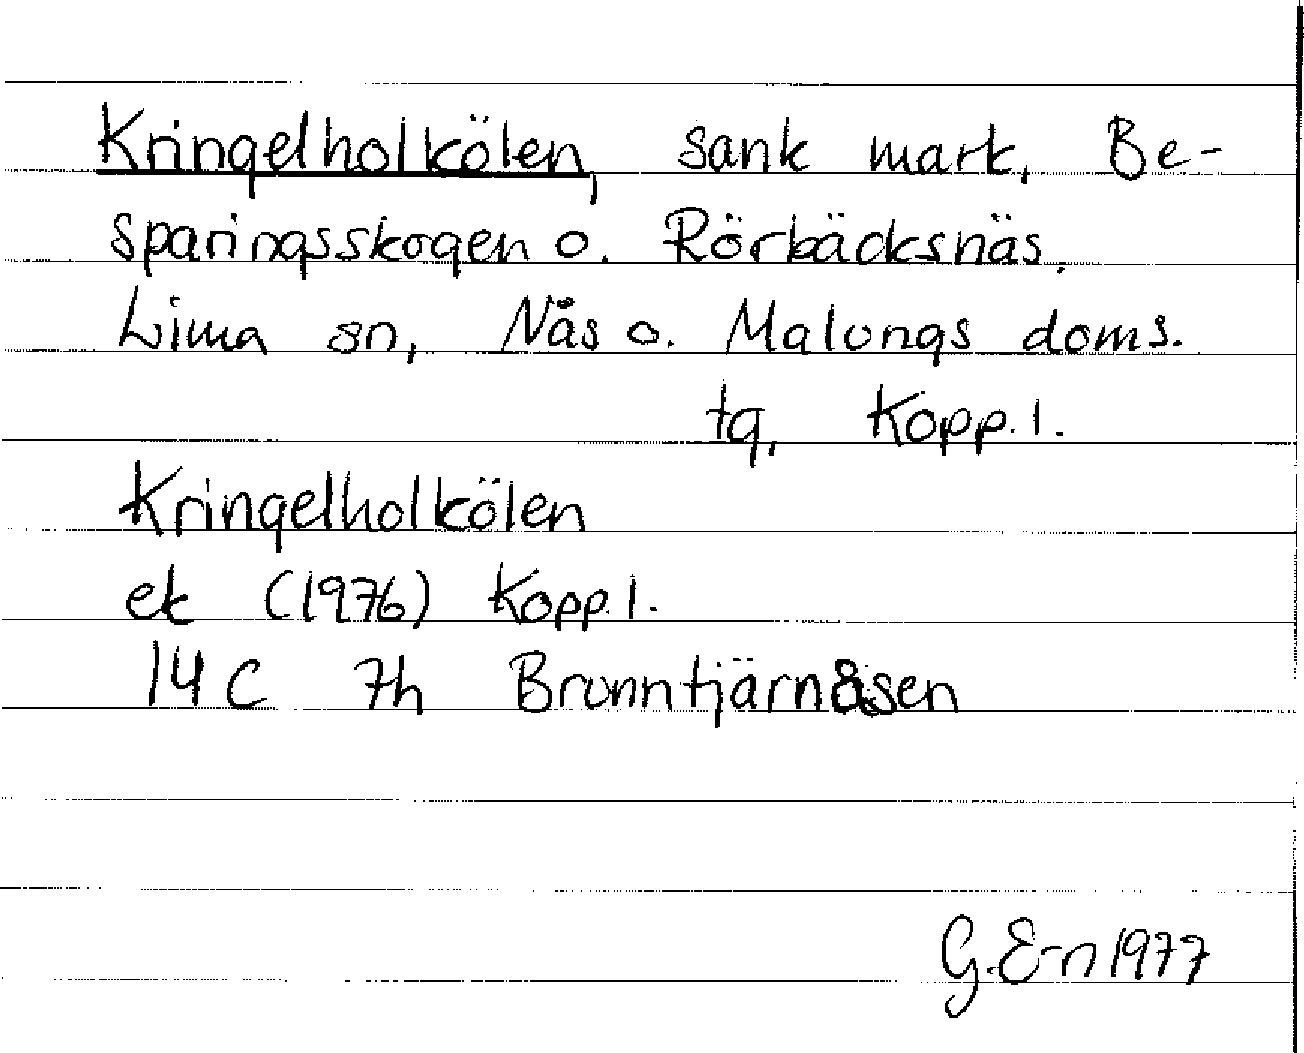 Kringelholkölen, sank mark, Be-
sparingsskogen o. Rörbäcksnäs,
Lima sn, Nås o. Malungs doms.
tg, Kopp. l.
Kringelholkölen
ek (1976) Kopp. l.
14 C 7h Brunntjärnåsen
G. E-n 1977